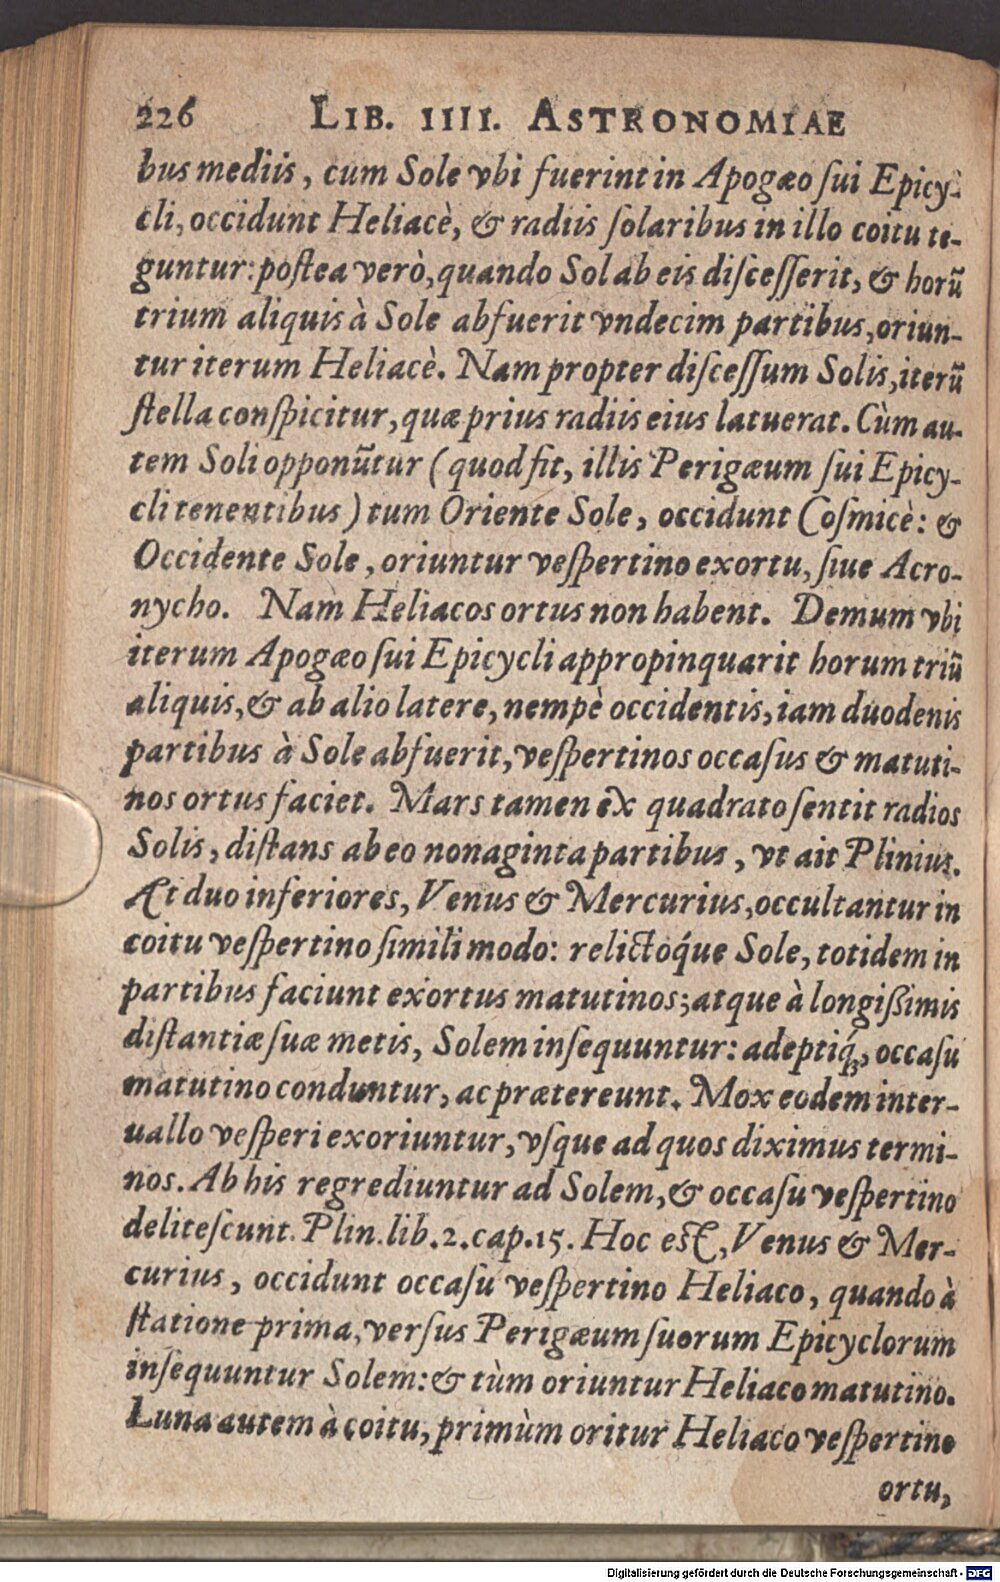 226 LIB. IIII. ASTRONOMIAE
bus mediis, cum Sole vbi fuerint in Apogæo ſui Epicy-
cli, occidunt Heliacè, & radiis ſolaribus in illo coitu te-
guntur: poſtea verò, quando Sol ab eis diſceſſerit, & horū
trium aliquis à Sole abfuerit vndecim partibus, oriun-
tur iterum Heliacè. Nam propter diſceſſum Solis, iterū
ſtella conſpicitur, quæ prius radiis eius latuerat. Cùm au-
tem Soli opponūtur (quod fit, illis Perigæum ſui Epicy-
cli tenentibus) tum Oriente Sole, occidunt Coſmicè: &
Occidente Sole, oriuntur veſpertino exortu, ſiue Acro-
nycho. Nam Heliacos ortus non habent. Demum vbi
iterum Apogæo ſui Epicycli appropinquarit horum triū
aliquis, & ab alio latere, nempè occidentis, iam duodenis
partibus à Sole abfuerit, veſpertinos occaſus & matuti-
nos ortus faciet. Mars tamen ex quadrato ſentit radios
Solis, diſtans ab eo nonaginta partibus, vt ait Plinius.
At duo inferiores, Venus & Mercurius, occultantur in
coitu veſpertino ſimili modo: relictóque Sole, totidem in
partibus faciunt exortus matutinos; atque à longißimis
diſtantiæ ſuæ metis, Solem inſequuntur: adeptiq́;, occaſu
matutino conduntur, ac prætereunt. Mox eodem inter-
uallo veſperi exoriuntur, vſque ad quos diximus termi-
nos. Ab his regrediuntur ad Solem, & occaſu veſpertino
deliteſcunt. Plin. lib. 2. cap. 15. Hoc eſt, Venus & Mer-
curius, occidunt occaſu veſpertino Heliaco, quando à
ſtatione prima, verſus Perigæum ſuorum Epicyclorum
inſequuntur Solem: & tùm oriuntur Heliaco matutino.
Luna autem à coitu, primùm oritur Heliaco veſpertino
ortu,
Digitalisierung gefördert durch die Deutsche Forschungsgemeinschaft - DFG